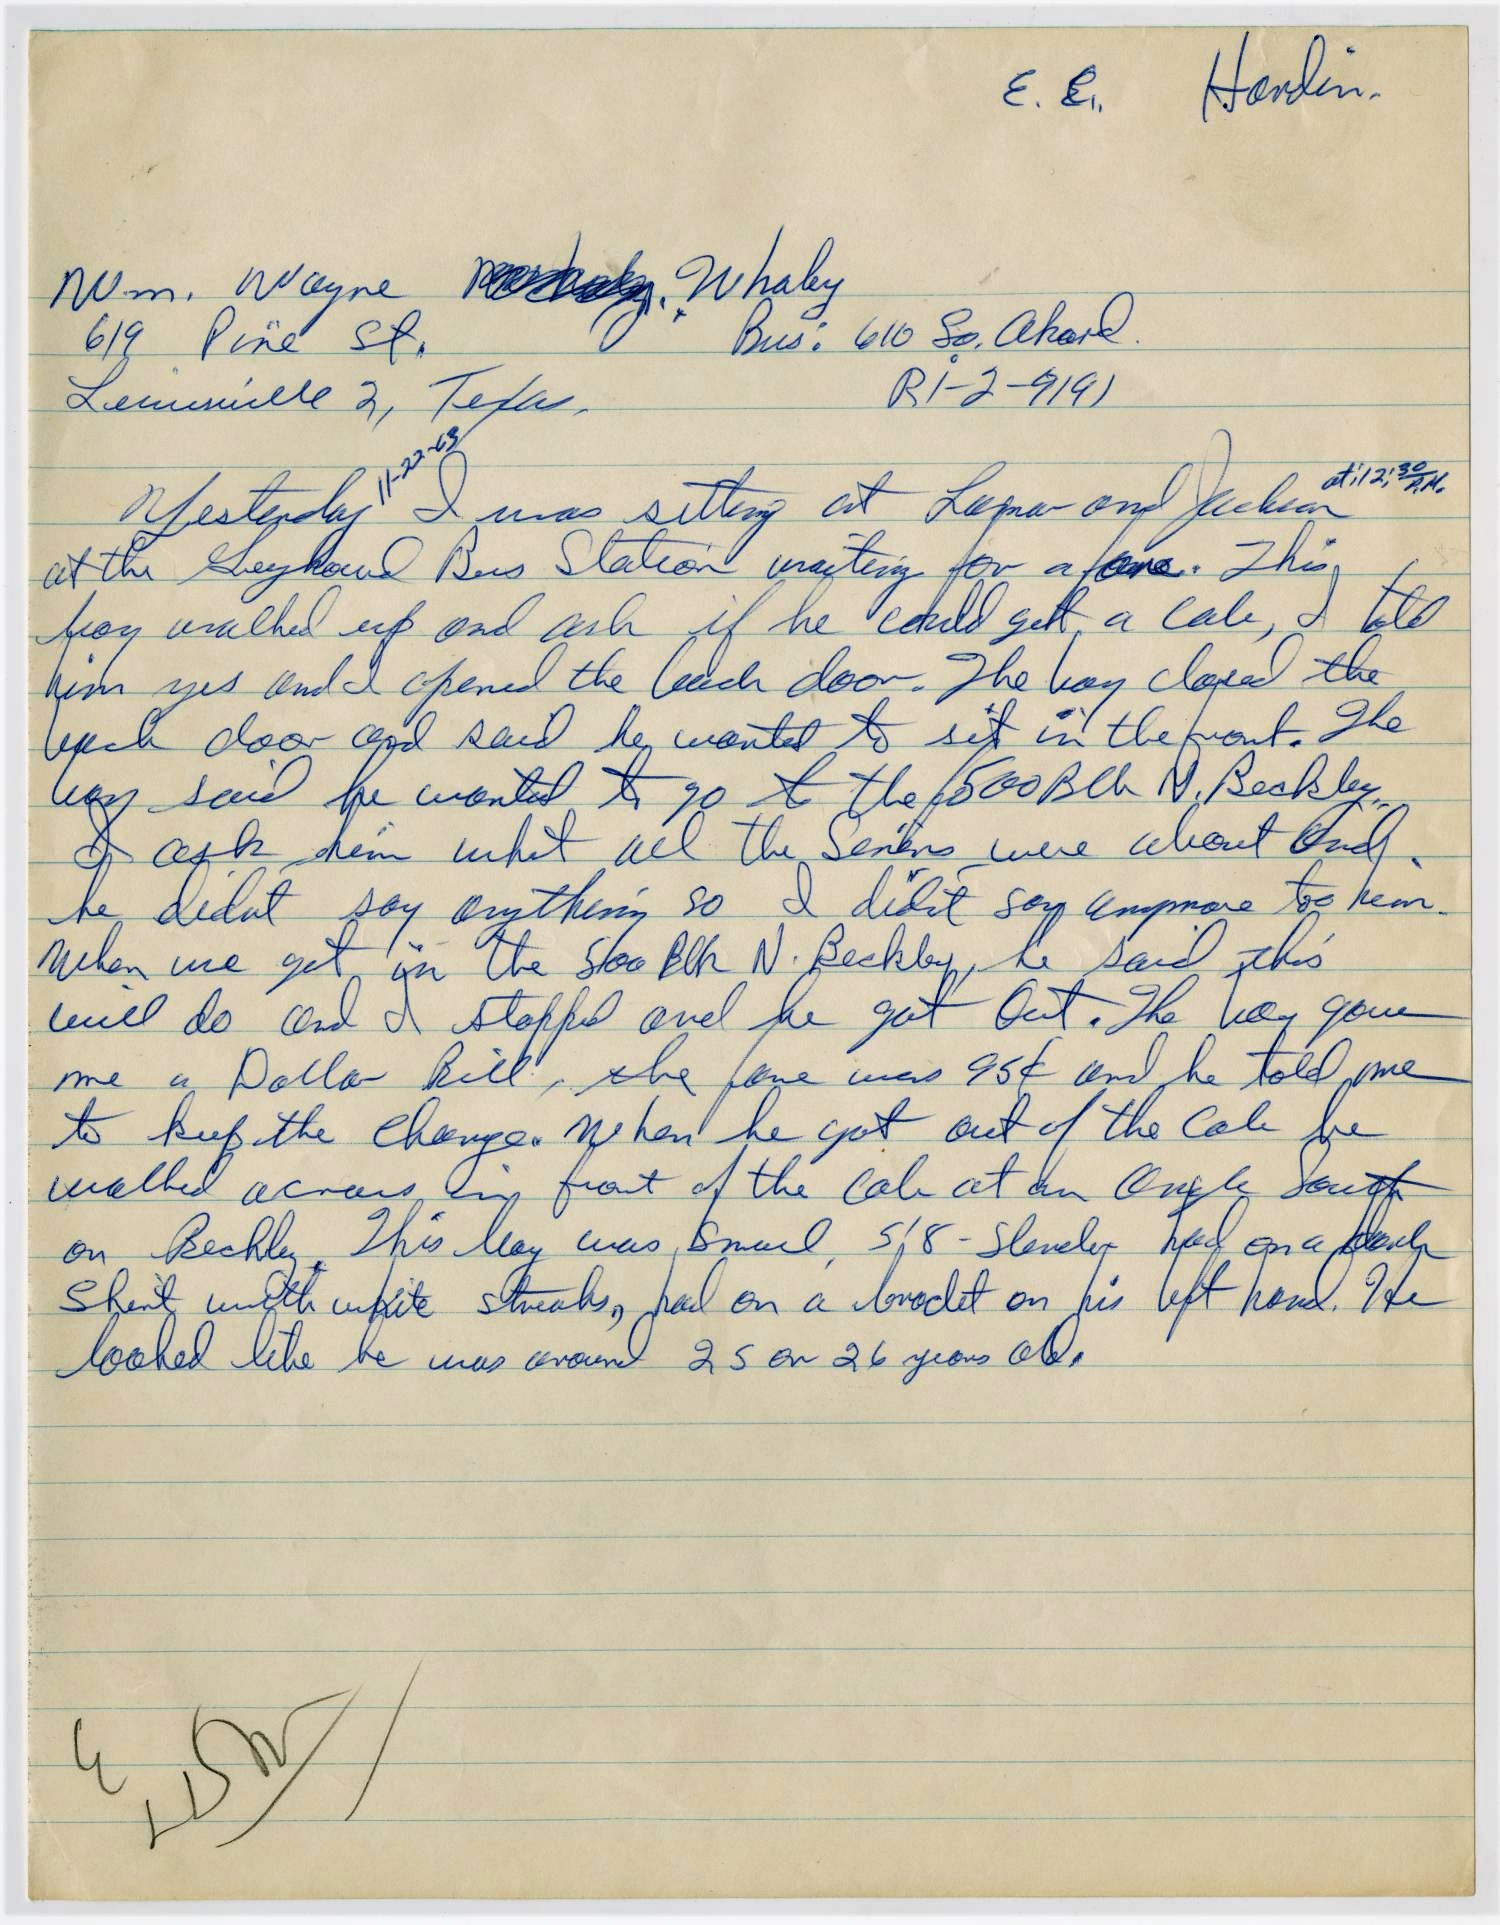 E. E. Hardin.
Wm. Wayne Whaley
619 Pine St. Bus: 610 So. Akard.
Lewisville 2, Texas. RI-2-9191
Yesterday 11-22-63 I was sitting at Lamar and Jackson at: 12:30 P.M.
at the Greyhound Bus Station waiting for a fare. This
boy walked up and ask if he could get a cab, I told
him yes and I opened the back door. The boy closed the
back door and said he wanted to sit in the front. The
boy said he wanted to go to the 500 Blk N. Beckley.
I ask him what all the Sirens were about and
he didnt say anything so I didn't say anymore too him.
When we got in the 500 Blk N. Beckley, he said this
will do and I stopped and he got Out. The boy gave
me a Dollar Bill, the fare was 95¢ and he told me
to keep the Change. When he got out of the Cab he
walked across in front of the Cab at an Angle South
on Beckley. This boy was Small, 5'8 - Slender had on a dark
Shirt with white streaks, had on a braclet on his left hand. He
looked like he was around 25 or 26 years old.